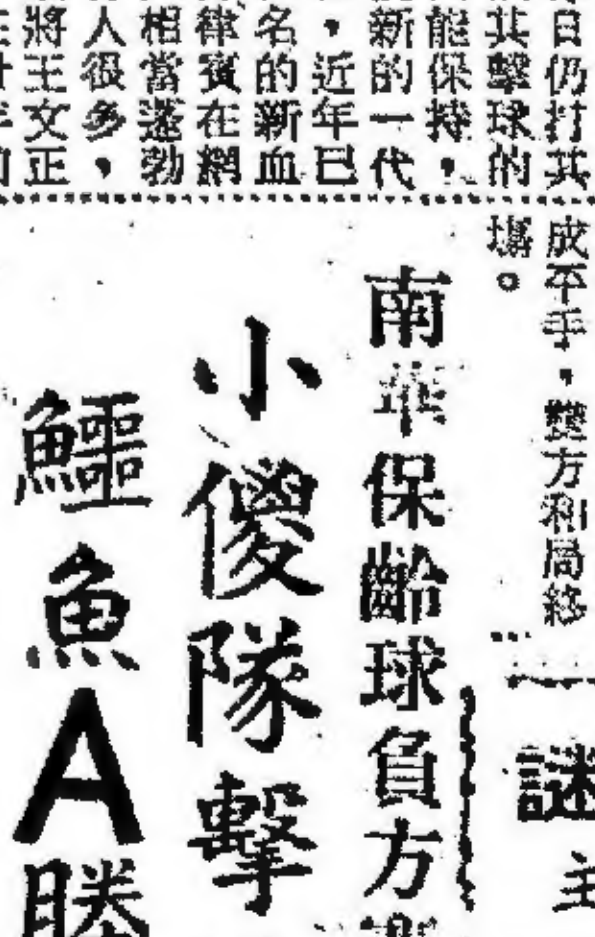 日仍打其
其擊球的
能保持，
新的一代
，近年已
名的新血
律賓在網
相當蓬勃
人很多，
將王文正
成平手，雙方和局終
場。
謎主
南華保齡球負方
小傻隊擊
鱷魚A勝